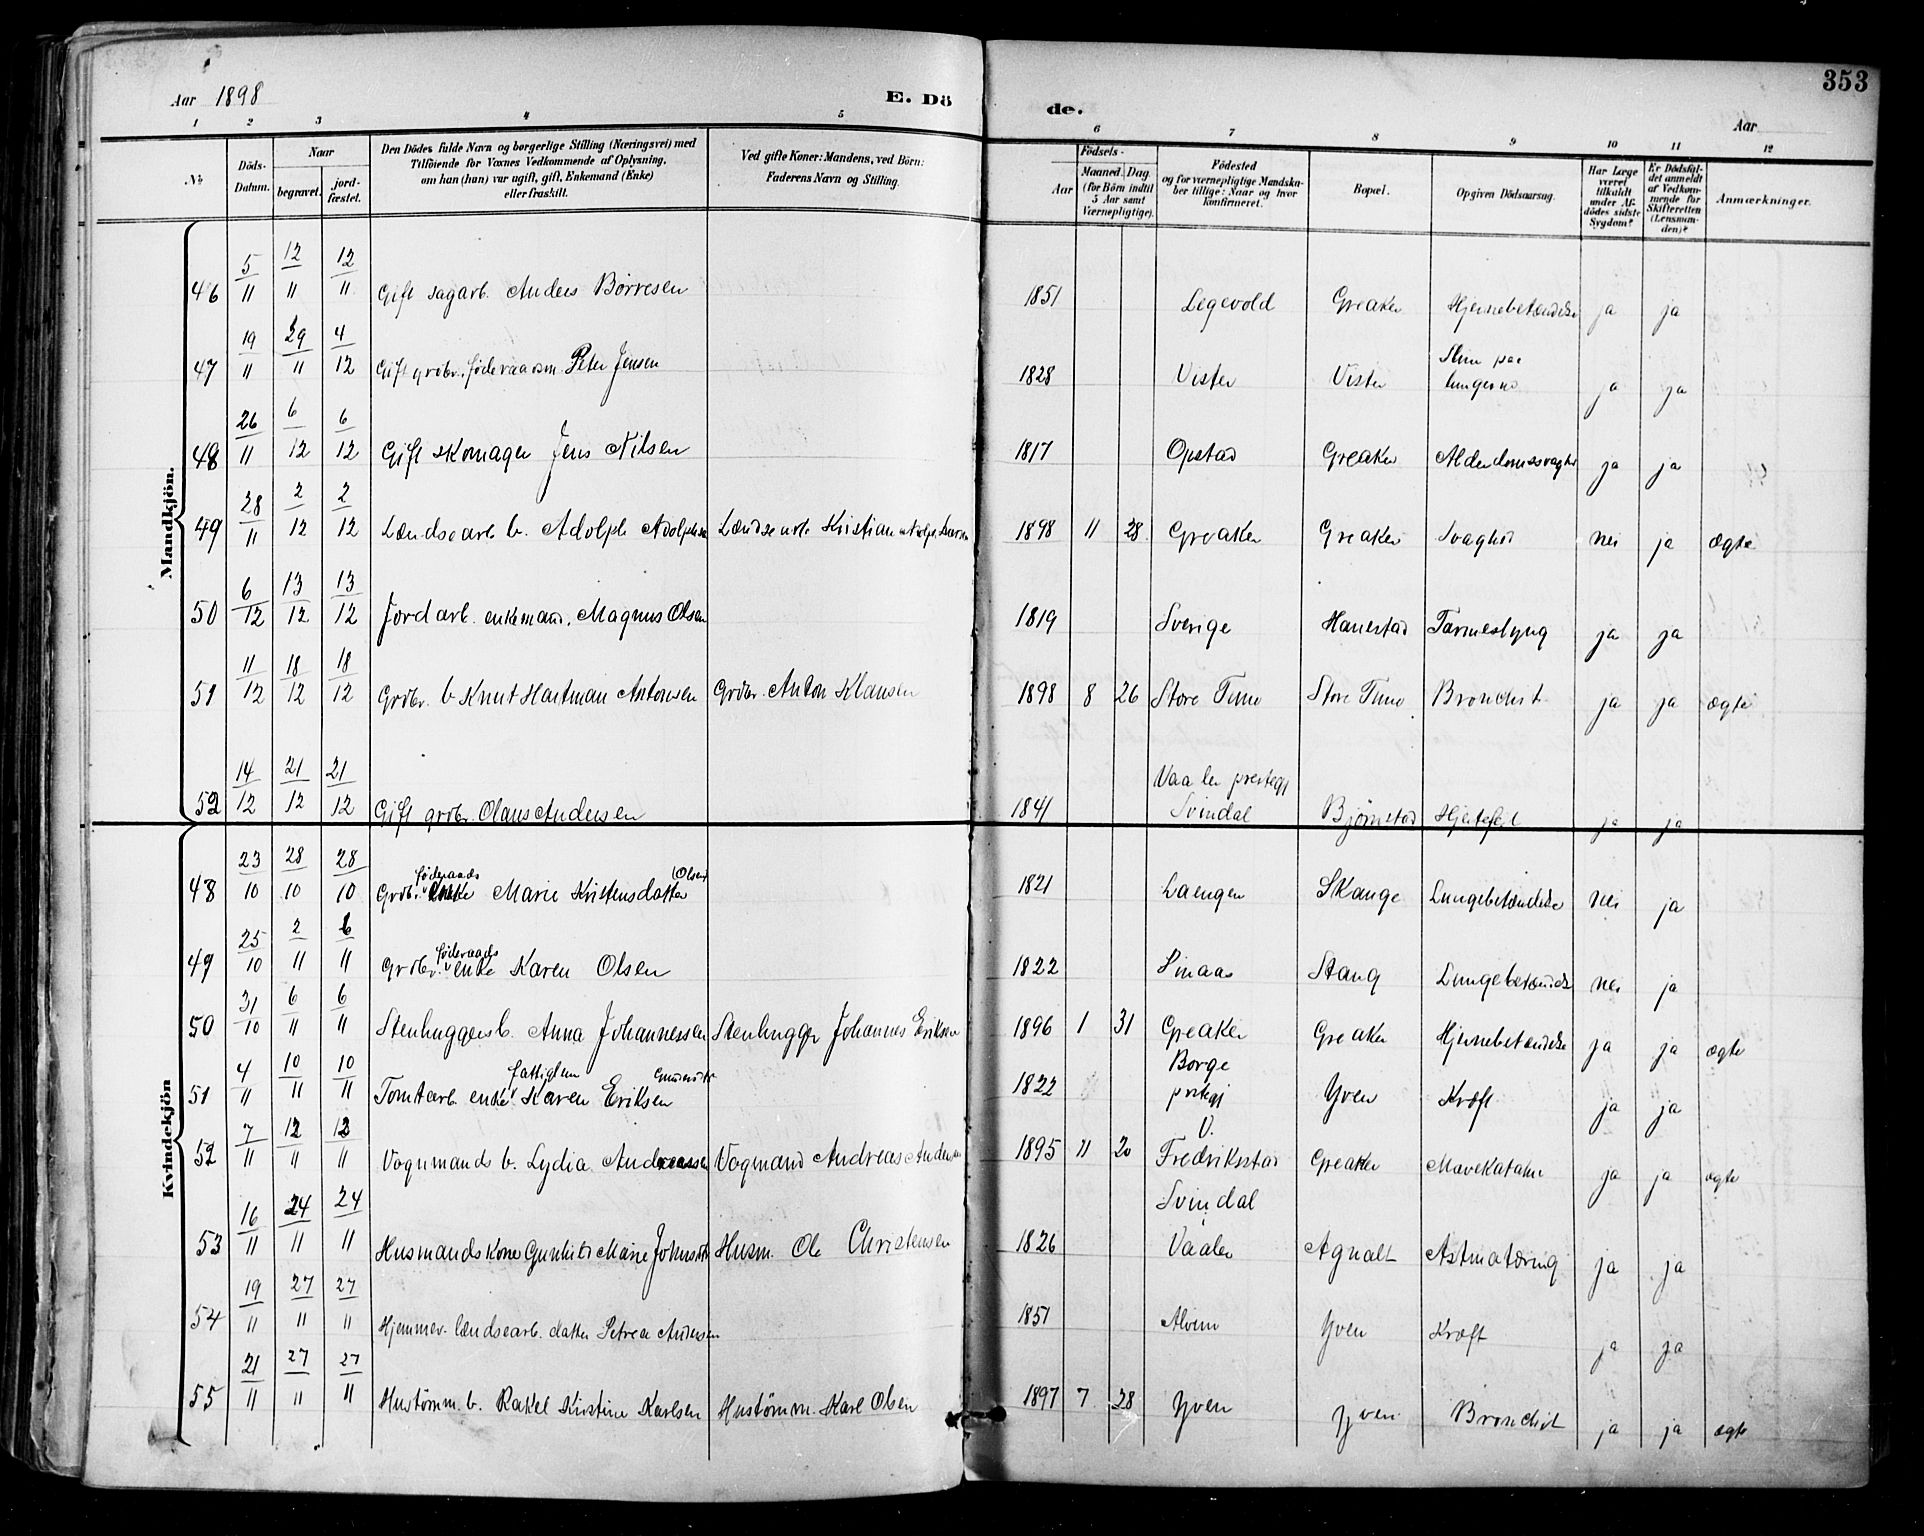 353
Aar 1898 E. Dö de. Aar
1 2 3 4 5 6 7 8 9 10 11 12
No. Döds-Datum. Naar begravet. jord-fæstet. Den Dödes fulde Navn og borgerlige Stilling (Næringsvei) med Tilföiende for Voxnes Vedkommende af Oplysning, om han (hun) var ugift, gift, Enkemand (Enke) eller fraskilt. Ved gifte Koner: Mandens, ved Börn: Faderens Navn og Stilling. Födsels- Aar Maaned. Dag. (for Börn indtil 5 Aar samt Værnepligtige). Födested og for værnepligtige Mandskaber tillige: Naar og hvor konfirmeret. Bopæl. Opgiven Dödsaarsag. Har Læge været tilkaldt under Afdödes sidste Sygdom? Er Dödsfaldet anmeldt af Vedkommende for Skifteretten (Lensmanden)? Anmærkninger.
Mandkjön.
46 5/11 12/11 12/11 Gift sagarb. Anders Børresen 1851 Legevold Greaker Hjernebetændelse ja ja
47 19/11 29/11 4/12 Gift grdbr. føderaadsm. Peter Jensen 1828 Vister Vister Slim paa lungerne ja ja
48 26/11 6/12 6/12 Gift skomager Jens Nilsen 1817 Opstad Greaker Alderdomssvaghed ja ja
49 28/11 2/12 2/12 Lændsearb. b. Adolph Adolphsen Lændsearb. Kristian Adolph Larsen 1898 11 28 Greaker Greaker Svaghed nei ja ægte
50 6/12 13/12 13/12 Jordarb. enkemand. Magnus Olsen 1819 Sverige Hanestad Tarmeslyng ja ja
51 11/12 18/12 18/12 Grdbr. b. Knut Hartman Antonsen Grdbr. Anton Klausen 1898 8 26 Store Tune Store Tune Bronchit ja ja ægte
52 14/12 21/12 21/12 Gift grdbr. Olaus Andersen 1841 Vaaler prestegj Svindal Bjørnstad Hjertefeil ja ja
Kvindekjön
48 23/10 28/10 28/10 Grdbr. føderaads enke Marie Kristensdatter (Olsen) 1821 Laengen Skange Lungebetændelse nei ja
49 25/10 2/11 6/11 Grdbr. føderaads enke Karen Olsen 1822 Stang Lungebetændelse nei ja
50 31/10 6/11 6/11 Stenhuggers b. Anna Johannessen Stenhugger Johannes Eriksen 1896 1 31 Greaker Greaker Hjernebetændelse ja ja ægte
51 4/11 10/11 10/11 Tomtarb. enke fattiglem Karen Eriksen 1822 Borge prstegj Yven Kræft ja ja
52 7/11 12/11 12/11 Vognmands b. Lydia Andreassen Vogmand Andreas Andersen 1895 11 20 V. Fredriksstad Greaker Mavekatarr ja ja ægte
53 16/11 24/11 24/11 Husmands Kone Gunhild Marie Johnsdtr. Husm. Ole Christensen 1826 Svindal Vaaler Agnalt Astmatæring ja ja
54 19/11 27/11 27/11 Hjemmev. lændsearb. datter Petrea Andersen 1851 Alvim Yven Kræft ja ja
55 21/11 27/11 27/11 Hustømm. b. Rakel Kristine Karlsen Hustømm. Karl Olsen 1897 7 28 Yven Yven Bronchit ja ja ægte